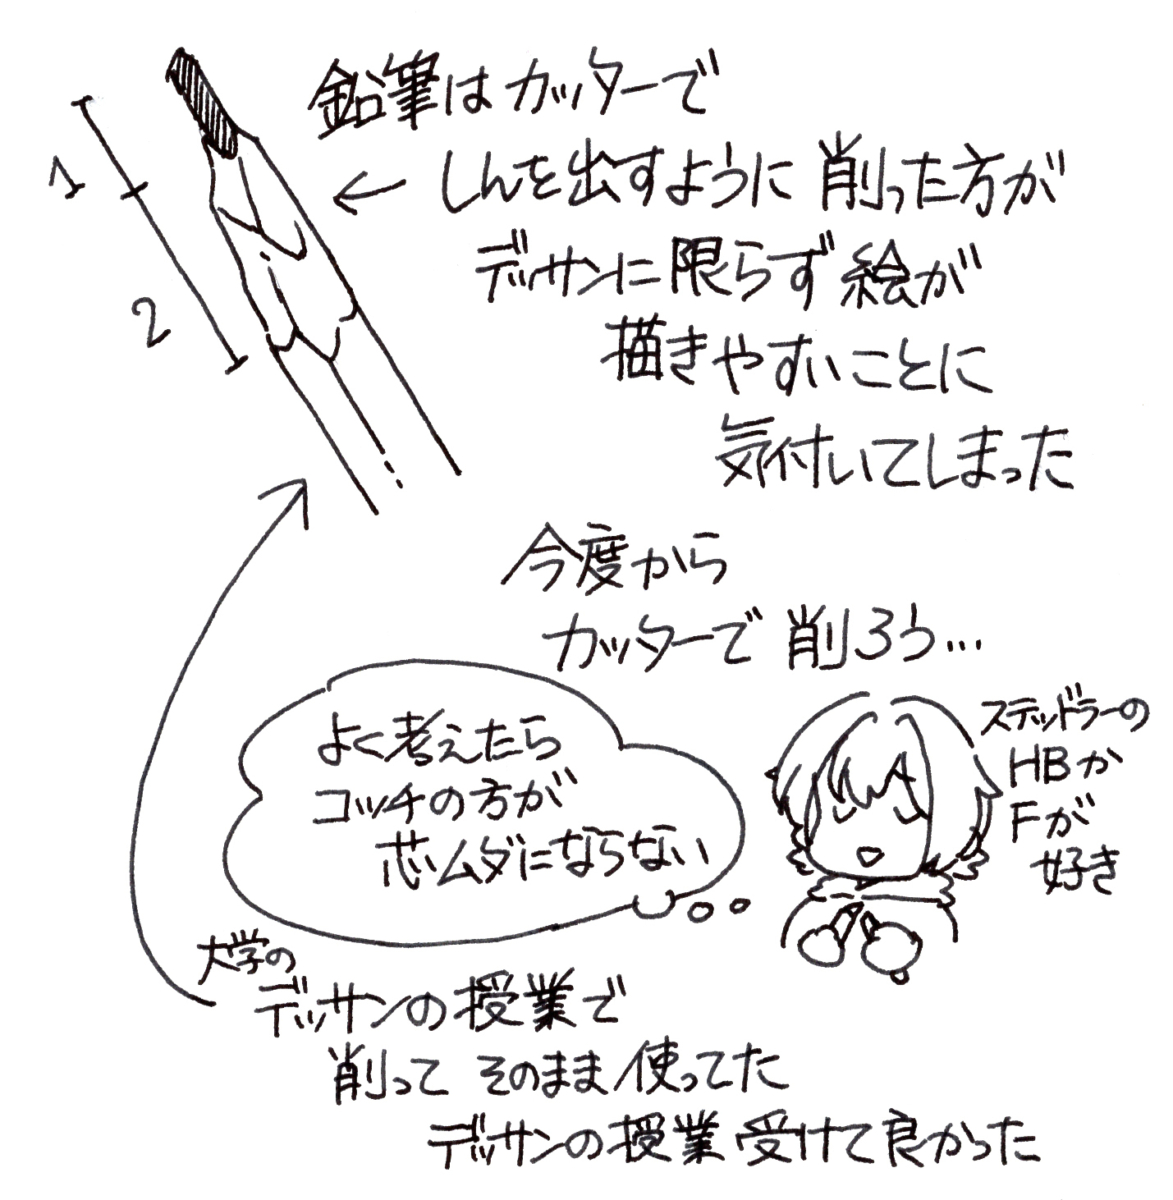 鉛筆はカッターで
しんを出すように削った方が
デッサンに限らず絵が
描きやすいことに
気付いてしまった
1
2
今度から
カッターで削ろう…
ステッドラーの
HBか
Fが
好き
よく考えたら
コッチの方が
芯ムダにならない
大学の
デッサンの授業で
削ってそのまま使ってた
デッサンの授業受けて良かった